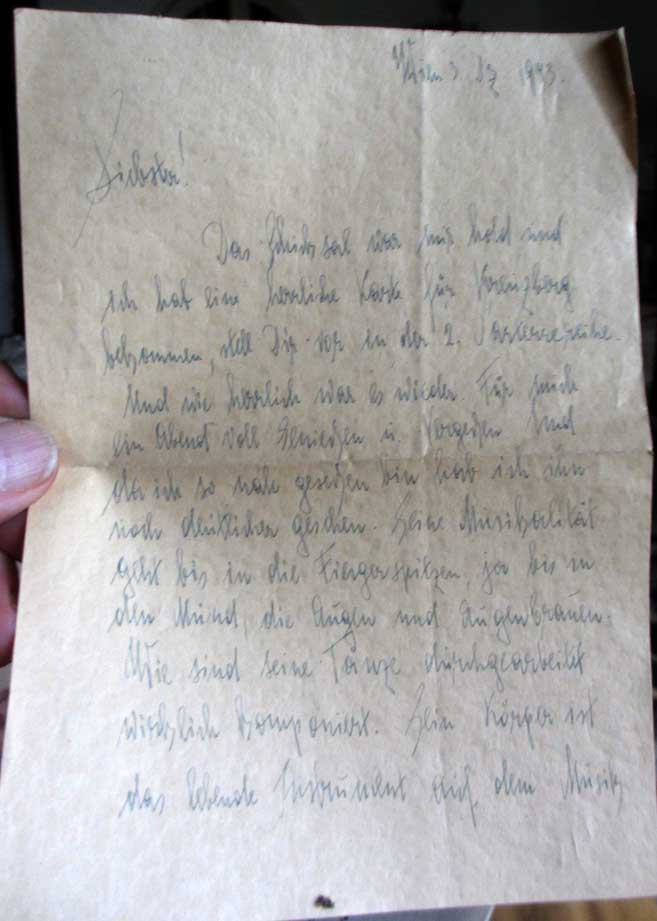 Wien 3 Dz 1943.
Liebster!
Das Schicksal war mir hold und
ich hab eine herrliche Karte für Kreuzberg
bekommen, stell Dir vor in der 2. Parterrereihe.
Und wie herrlich war es wieder. Für mich
ein Abend voll Genießen u. Vergeßen und
da ich so nahe geseßen bin hab ich ihn
noch deutlicher gesehen. Seine Musikalität
geht bis in die Fingerspitzen, ja bis in
den Mund, die Augen und Augenbrauen.
Wie sind seine Tänze durchgearbeitet
wirklich komponiert. Sein Körper ist
das lebende Instrument auf dem Musik